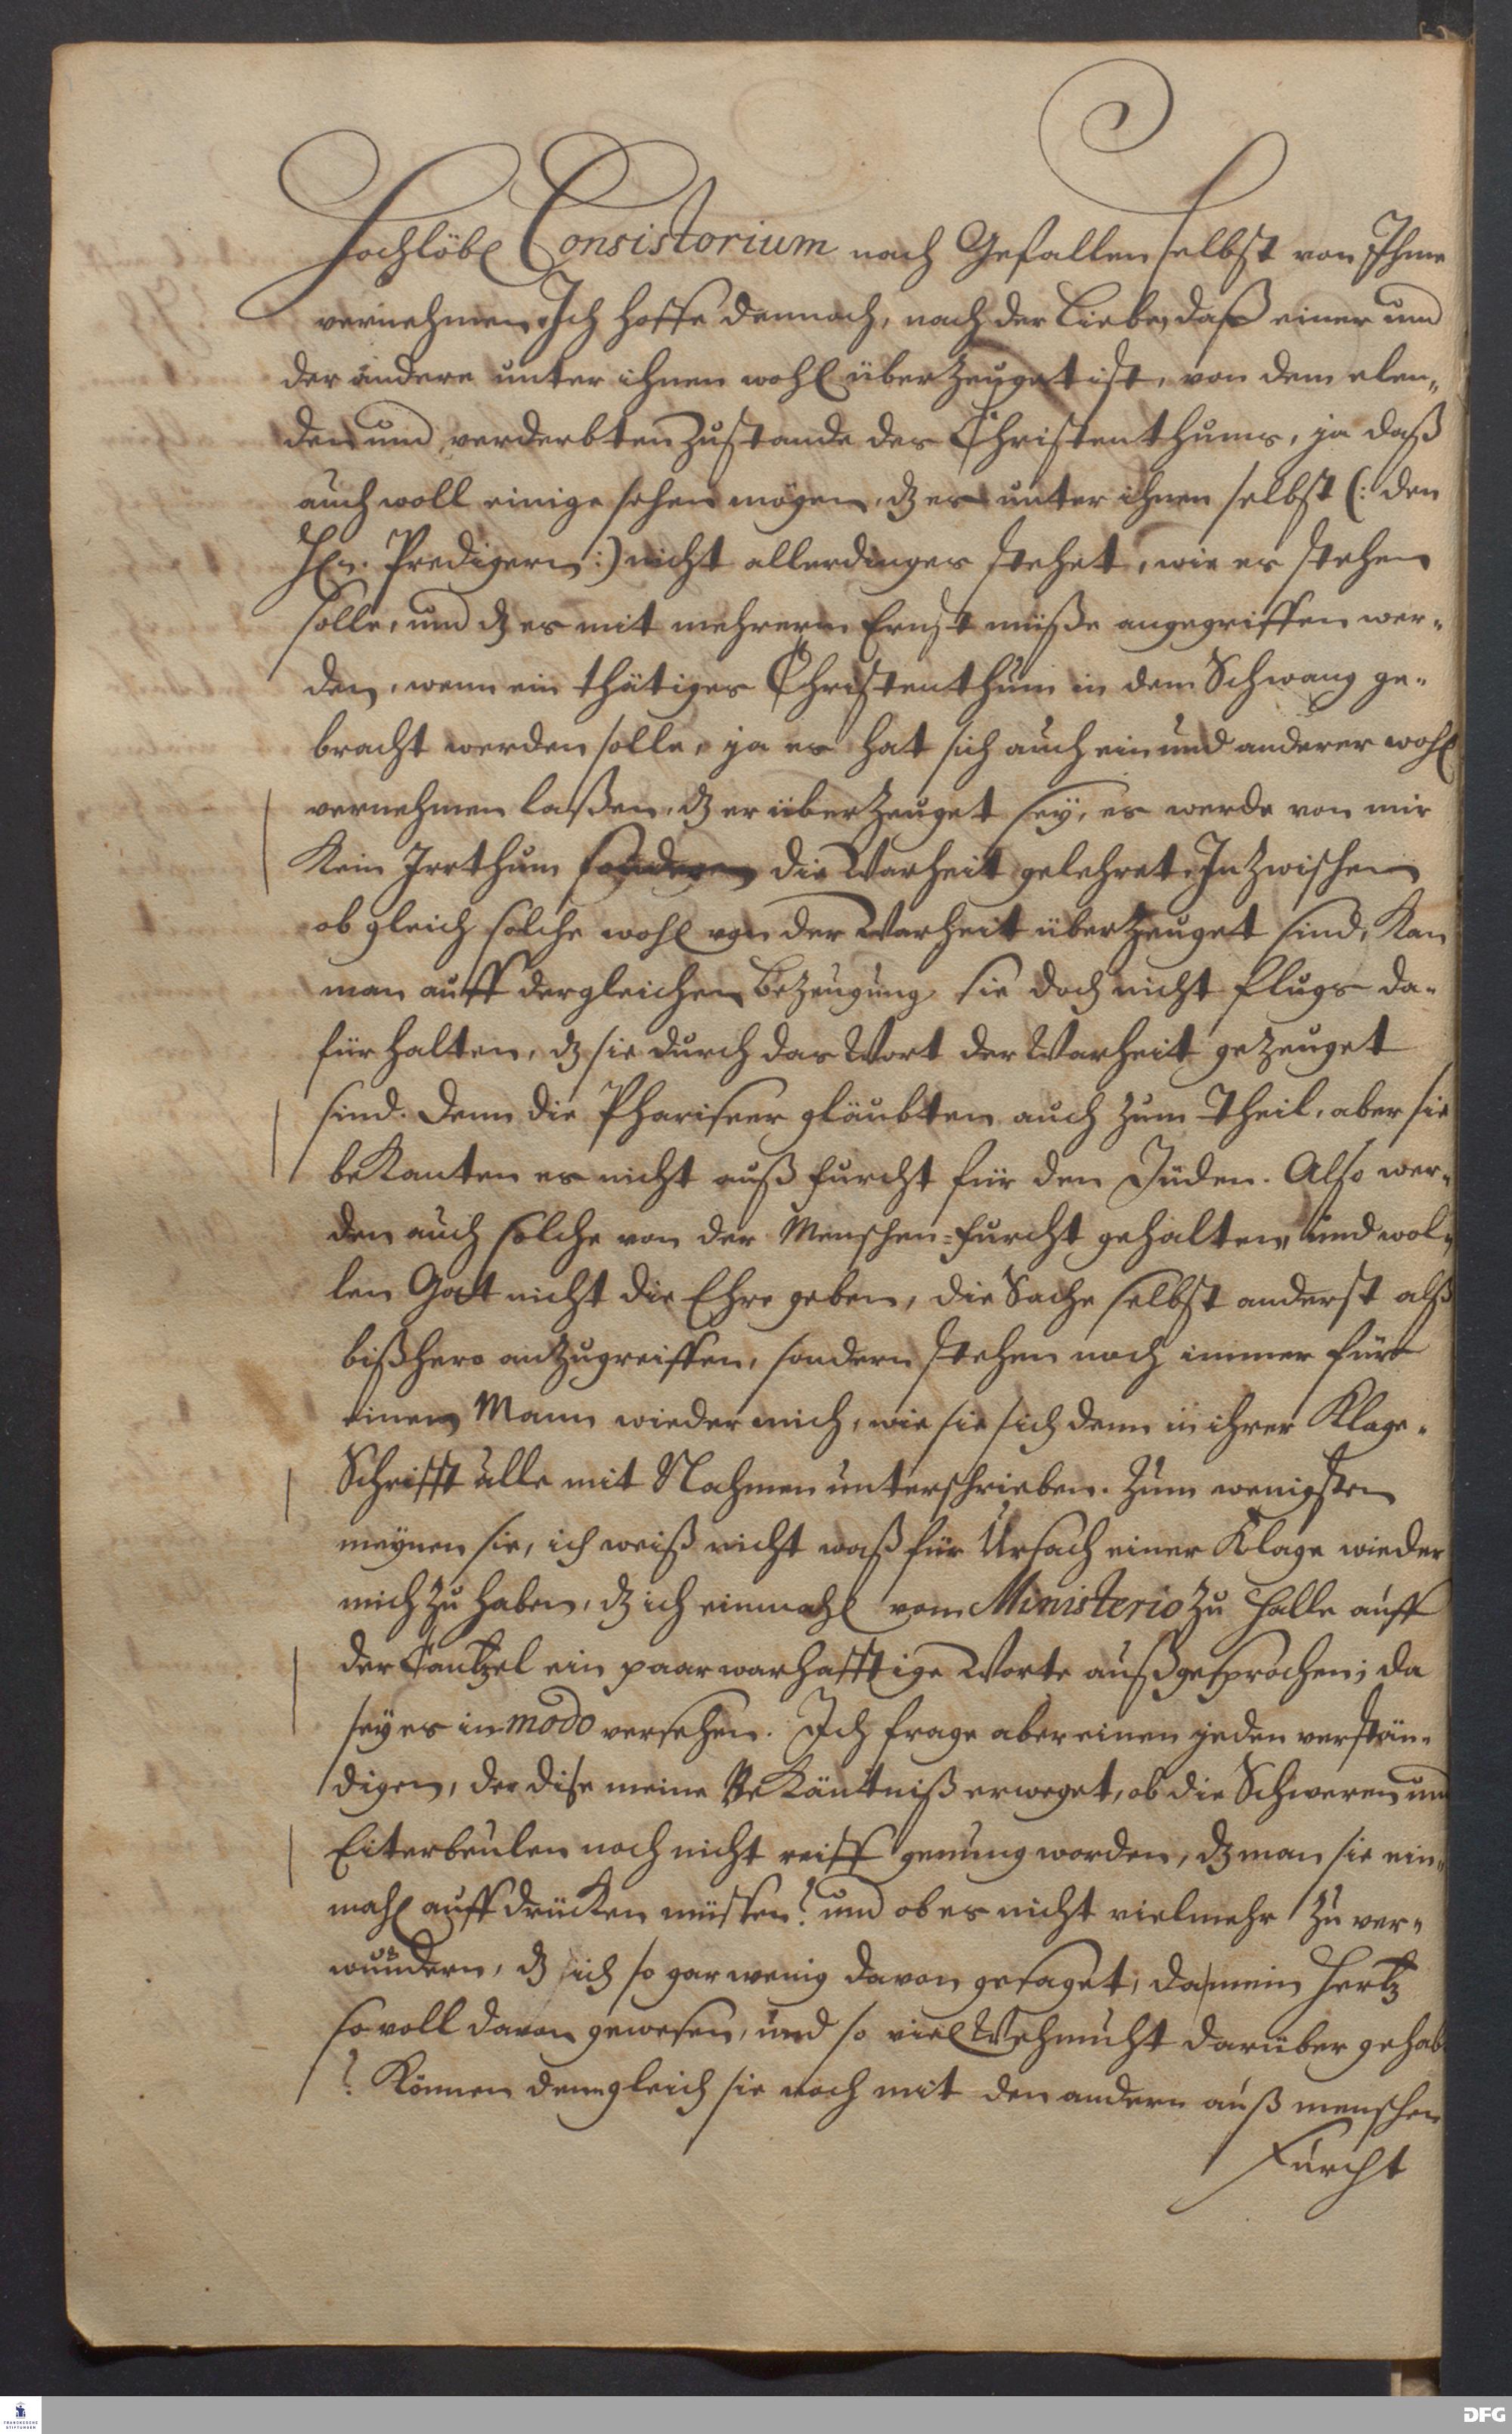 Hochlöbl Consistorium nach Gefallen selbst von Ihme
vernehmen. Ich hoffe dennoch, nach der Liebe, daß einer und
der andere unter ihnen wohl überzeuget ist, von dem elen„
den und verderbten Zustande des Christenthums, ja daß
auch woll einige sehen mögen, dz es unter ihnen selbst (: den
HEn. Predigern :) nicht allerdinges stehet, wie es stehen
solle, und dz es mit mehrerm Ernst müße angegriffen wer„
den, wenn ein thätiges Christenthum in dem Schwang ge„
bracht werden solle, ja es hat sich auch ein und anderer wohl
vernehmen laßen, dz er überzeuget sey, es werde von mir
Kein Irrthum sondern die Warheit gelehret. Inzwischen
ob gleich solche wohl von der Warheit überzeuget sind, Kan
man auff dergleichen Bezeugung sie doch nicht flugs da„
für halten, dz sie durch das Wort der Warheit gezeuget
sind. Denn die Phariseer gläubten auch zum Theil, aber sie
beKanten es nicht auß furcht für den Jüden. Also wer„
den auch solche von der Menschen=furcht gehalten, und wol„
len Gott nicht die Ehre geben, die Sache selbst anderst alß
bißhero anzugreiffen, sondern stehen noch immer für
einen Mann wieder mich, wie sie sich denn in ihrer Klage„
Schrifft alle mit Nahmen unterschrieben. Zum wenigsten
meynen sie, ich weiß nicht waß für Ursach einer Klage wieder
mich zu haben, dz ich einmahl vom Ministerio zu Halle auff
der Cantzel ein paar warhafftige Worte außgesprochen; da
sey es in modo versehen. Ich frage aber einen jeden verstän„
digen, der dise meine BeKäntniß erweget, ob die Schweren und
Eiterbeulen noch nicht reiff genung worden, dz man sie ein„
mahl auffdrücken müssen? und ob es nicht vielmehr zu ver„
wundern, dz ich so gar wenig davon gesaget, da mein Hertz
so voll davon gewesen, und so viel Wehmuht darüber gehab
? Können denn gleich sie noch mit den andern auß menschen
Furcht
FRANCKESCHE
STIFTUNGEN
DFG